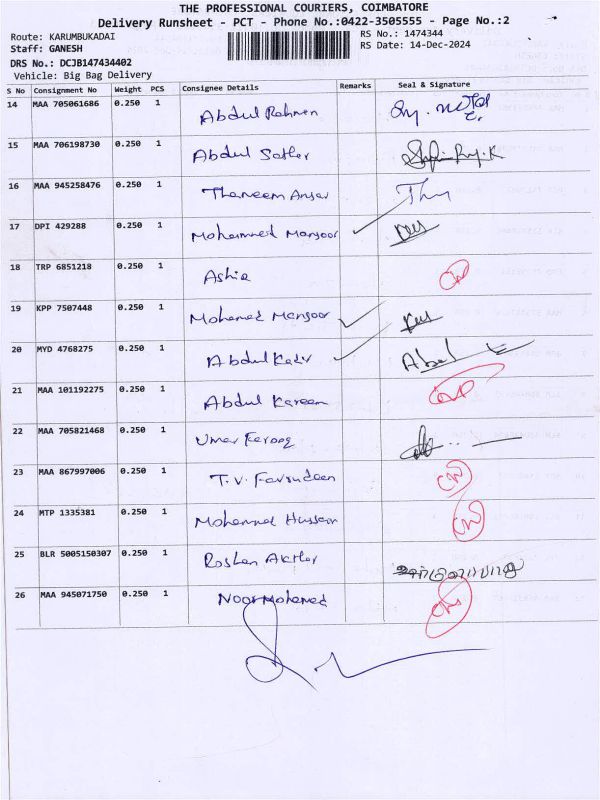 THE PROFESSIONAL COURIERS, COIMBATORE
Delivery Runsheet - PCT - Phone No.:0422-3505555 - Page No.:2
Route: KARUMBUKADAI RS No.: 1474344
Staff: GANESH RS Date: 14-Dec-2024
DRS No.: DCJB147434402
Vehicle: Big Bag Delivery
S No Consignment No Weight PCS Consignee Details Remarks Seal & Signature
14 MAA 705061686 0.250 1 Abdul Rahman
15 MAA 706198730 0.250 1 Abdul Sather
16 MAA 945258476 0.250 1 Thaneem Ansar
17 DPI 429288 0.250 1 Mohammed Mansoor
18 TRP 6851218 0.250 1 Ashia
19 KPP 7507448 0.250 1 Mohamed Mansoor
20 MYD 4768275 0.250 1 Abdul Kadir
21 MAA 101192275 0.250 1 Abdul Kareem
22 MAA 705821468 0.250 1 Umar Farooq
23 MAA 867997006 0.250 1 T.V. Farsudeen
24 MTP 1335381 0.250 1 Mohammed Hussain
25 BLR 5005150307 0.250 1 Roshan Akther
26 MAA 945071750 0.250 1 Noor Mohamed